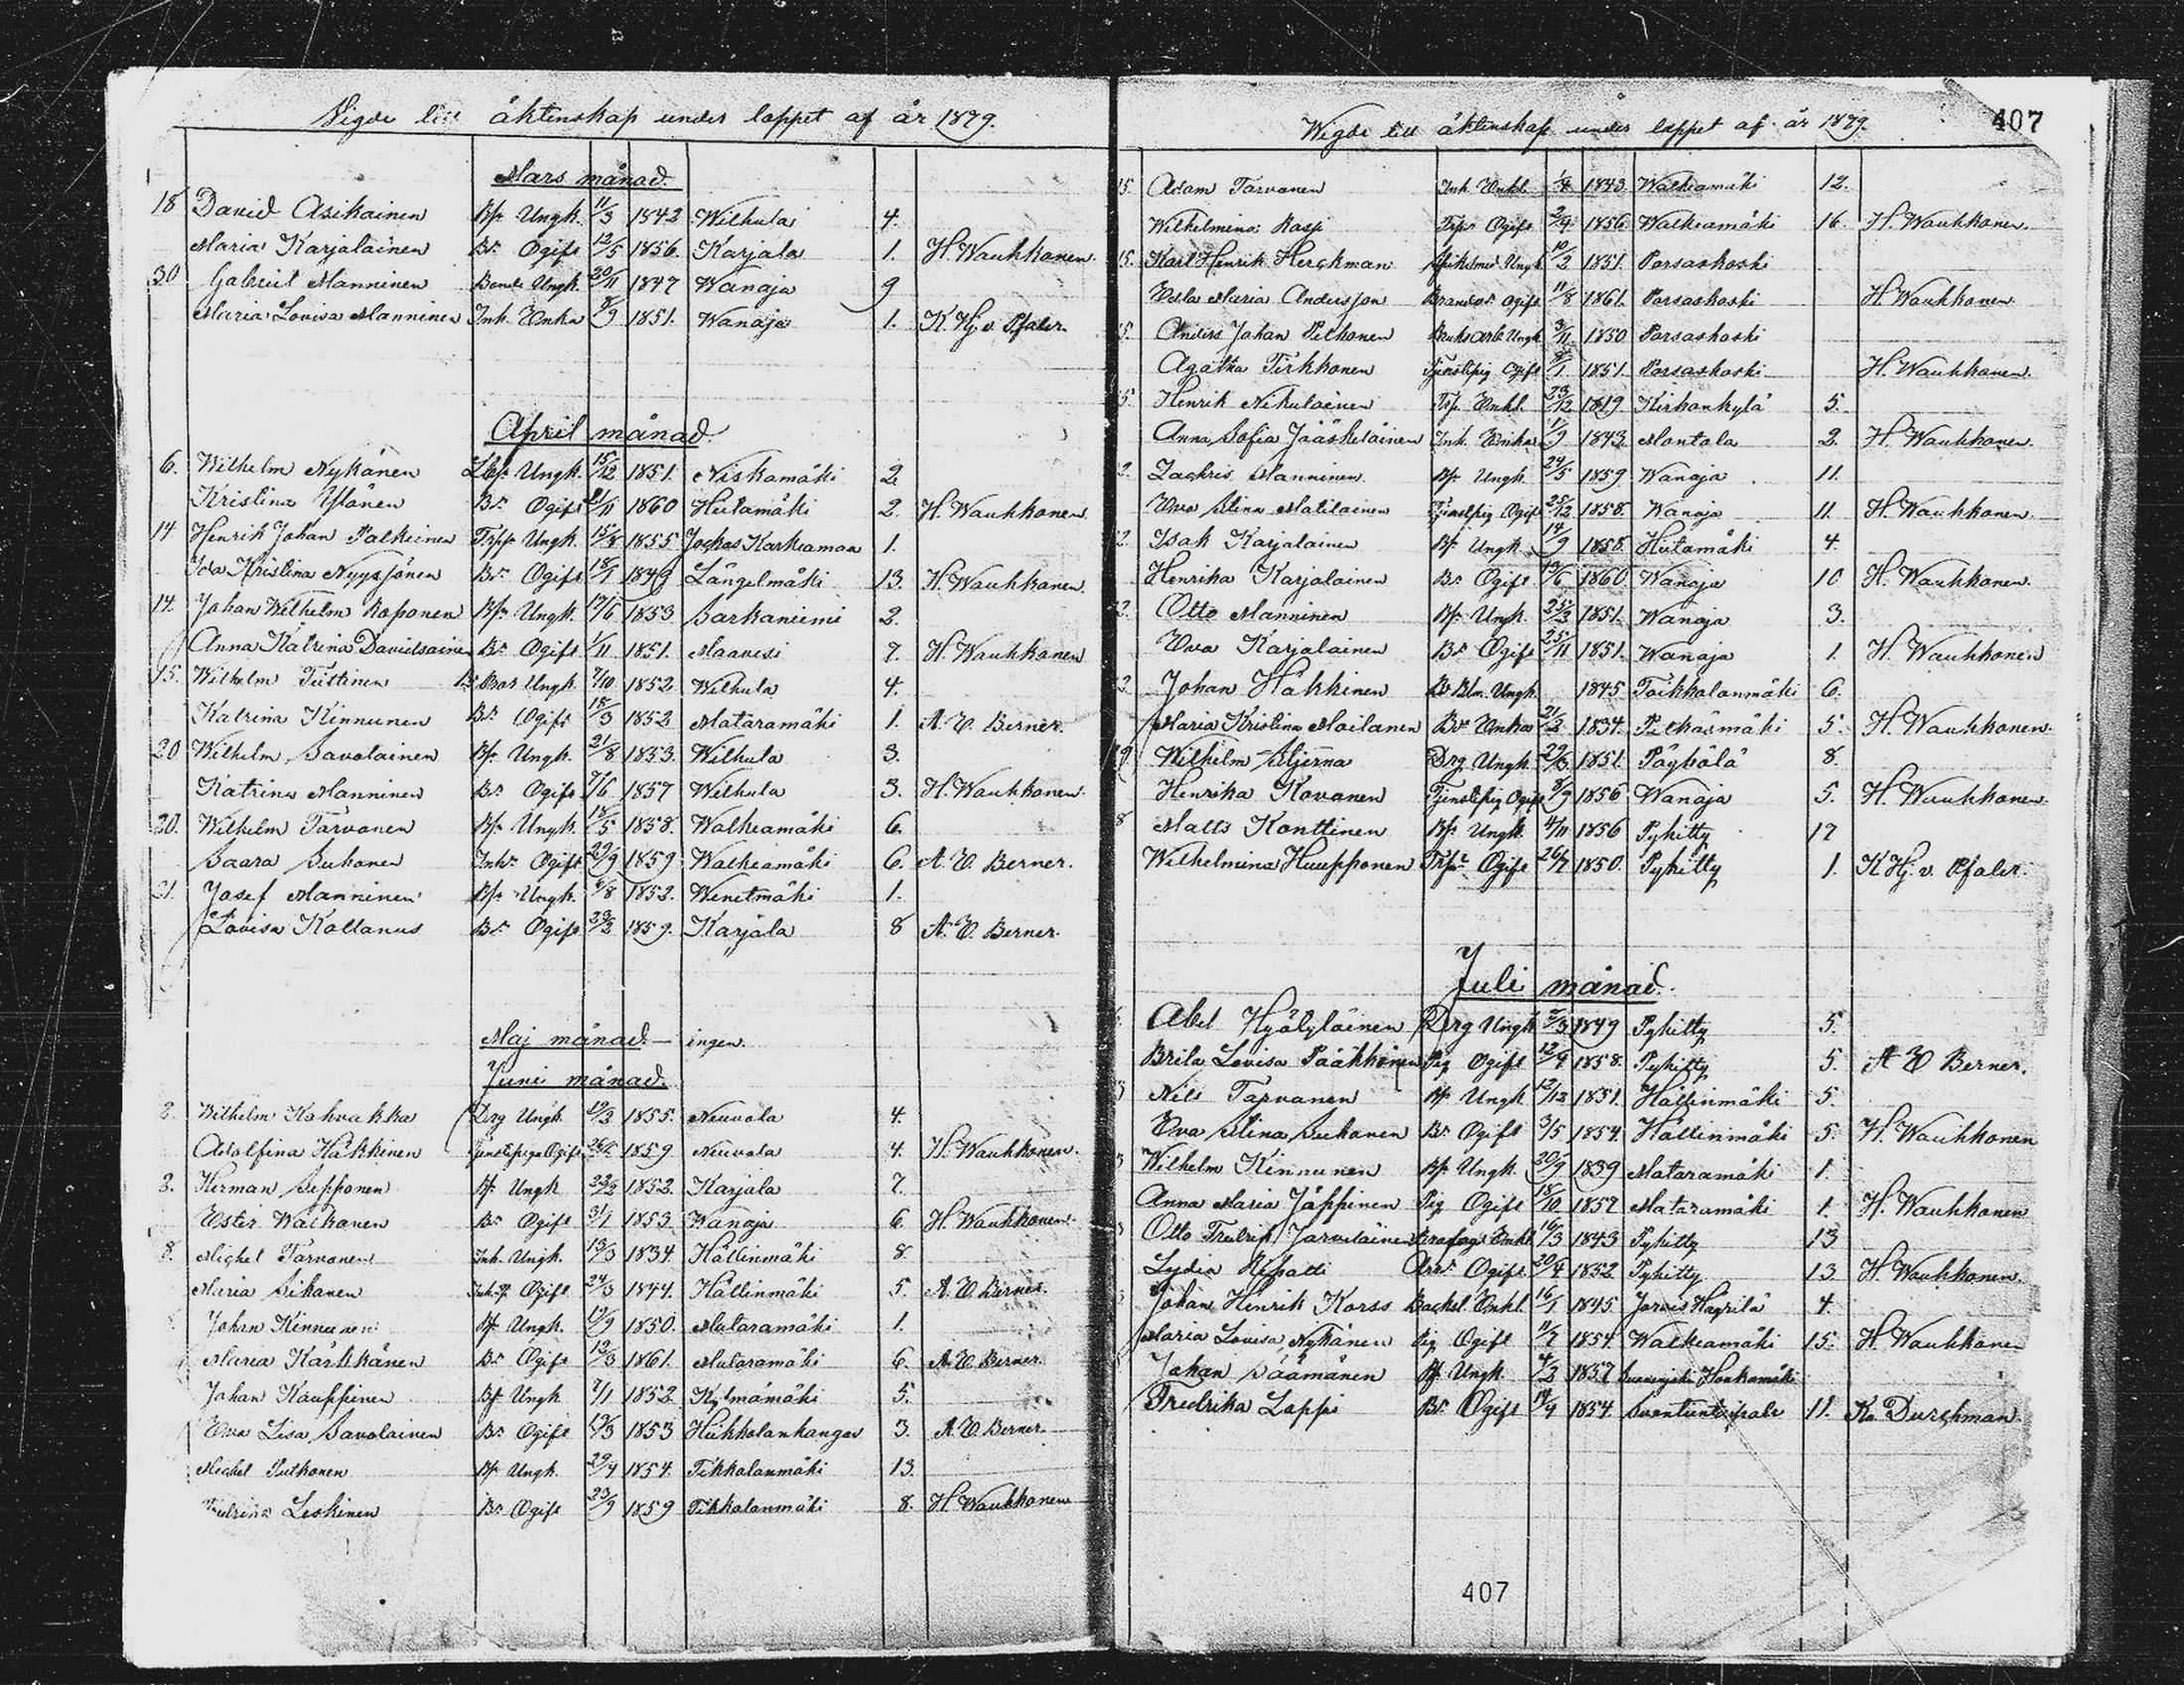 Vigde till äktenskap under loppet af år 1879.
Mars månad.
18 David Asikainen Bp. Ungk. 11/3 1842 Wilhula 4.
Maria Karjalainen Br. Ogift 12/5 1856. Karjala 1. H. Wauhkonen.
30 Gabriel Manninen Bonde Ungk. 20/11 1847 Wanaja 9
Maria Lovisa Manninen Inh. Enka 8/9 1851. Wanaja 1. K. Hj. v. Pfaler.
April månad.
6. Wilhelm Nykänen Ungk. 15/12 1851. Niskamäki 2
Kristina Ylänen Br. Ogift 1860 Hiitamäki 2. H. Wauhkonen.
14 Henrik Johan Palkeinen Ungk. 15/8 1855 Jockas Karkeamaa 1.
Ida Kristina Nyyssönen Br. Ogift 18/1 1849 Längelmäki 13. H. Wauhkonen.
14. Johan Wilhelm Roponen Bp. Ungk. 17/6 1853. Sarkaniemi 2.
Anna Katrina Davidsainen Br. Ogift 1/11 1851. Maavesi 7. H. Wauhkonen
15. Wilhelm Tiittinen Ungk. 7/10 1852 Wilhula 4.
Katrina Kinnunen Br. Ogift 15/3 1852 Mataramäki 1. A. E. Berner.
20 Wilhelm Savolainen Bp. Ungk. 21/8 1853. Wilhula 3.
Katrina Manninen Br. Ogift 7/6 1857 Wilhula 3. H. Wauhkonen.
20. Wilhelm Tarvanen Bp. Ungk. 15/5 1858. Walkeamäki 6.
Saara Suhonen Inhr. Ogift 29/9 1859 Walkeamäki 6. A. E. Berner.
21. Josef Manninen Bp. Ungk. 6/8 1852. Wenetmäki 1.
Lovisa Kollanus Br. Ogift 23/2 1859. Karjala 8 A. E. Berner.
Maj månad. — ingen.
Juni månad.
8. Wilhelm Kohvakka Drg Ungk. 19/3 1855. Neuvola 4.
Adolfina Häkkinen Ogift 1859 Neuvola 4. H. Wauhkonen.
8. Herman Sepponen Bp. Ungk 22/2 1852. Karjala 7.
Ester Walkonen Br. Ogift 31/1 1853. Wanaja 6. H. Wauhkonen.
8. Michel Tarvanen Inh. Ungk. 13/3 1834. Hällinmäki 8.
Maria Sikanen Ogift 24/3 1844. Hällinmäki 5. A. E. Berner.
Johan Kinnunen Bp. Ungk. 19/9 1850. Mataramäki 1.
Maria Kärkkänen Br. Ogift 13/3 1861. Mataramäki 6. A. E. Berner.
Johan Kauppinen Bp. Ungk 7/1 1852. Kylmämäki 5.
Eva Lisa Savolainen Br. Ogift 13/3 1853 Hiikkolankangas 3. A. E. Berner.
Michel Putkonen Bp. Ungk. 29/4 1854. Tikkalanmäki 13.
Leskinen Br. Ogift 23/9 1859 Tikkalanmäki 8. H. Wauhkonen
Wigde till äktenskap under loppet af år 1879.
407
15. Adam Tarvanen Inh. Enkl. 1843. Walkeamäki 12.
Wilhelmina Rasp Ogift 2/9 1856. Walkeamäki 16. H. Wauhkonen.
15. Karl Henrik Herckman Ungk. 10/2 1851. Porsaskoski
Edla Maria Andersson Ogift 11/8 1861. Porsaskoski H. Wauhkonen
15. Anders Johan Pelkonen Bruksarb. Ungk 3/11 1850 Porsaskoski
Agatha Tirkkonen Tjenstepig Ogift 8/1 1851. Porsaskoski H. Wauhkonen.
5. Henrik Nikulainen Trp. Enkl. 23/12 1819 Kirkonkylä 5.
Anna Sofia Jääskeläinen Inh. Enka 1/9 1843. Montola 2. H. Wauhkonen.
2. Zachris Manninen Bp. Ungk. 24/5 1859 Wanaja 11.
Eva Stina Matilainen Tjenstepig Ogift 25/12 1858. Wanaja 11. H. Wauhkonen.
2. Isak Karjalainen Bp. Ungk 14/9 1858. Hiitamäki 4.
Henrika Karjalainen Br. Ogift 19/6 1860. Wanaja 10 H. Wauhkonen.
2. Otto Manninen Bp. Ungk. 25/3 1851. Wanaja 3.
Eva Karjalainen Br. Ogift 25/11 1851. Wanaja 1. H. Wauhkonen
Johan Häkkinen Ungk. 1845 Toikkalanmäki 6.
Maria Kristina Moilanen Br. Enka 21/2 1834. Pitkäsmäki 5. H. Wauhkonen.
Wilhelm Stjerna Drg Ungk. 29/3 1851. Päybölä 8.
Henrika Kovanen Tjenstepig Ogift 8/9 1856 Wanaja 5. H. Wauhkonen.
8 Matts Konttinen Bp. Ungk. 4/11 1856 Pyhitty 17
Wilhelmina Huupponen Trpr. Ogift 26/7 1850. Pyhitty 1. K Hj. v. Pfaler.
Juli månad.
Abel Hyälyläinen Drg Ungk 2/3 1849 Pyhitty 5.
Brita Lovisa Pääkkönen Pig Ogift 12/9 1858. Pyhitty 5. A E Berner.
Nils Tarvanen Bp. Ungk 12/12 1851. Hällinmäki 5.
Eva Stina Suhonen Br. Ogift 3/5 1854. Hällinmäki 5. H. Wauhkonen
Wilhelm Kinnunen Bp. Ungk. 20/9 1839 Mataramäki 1.
Anna Maria Jäppinen Pig Ogift 18/10 1857 Mataramäki 1. H. Wauhkonen
Otto Fredrik Jarveläinen Enkl. 16/3 1843 Pyhitty 13
Lydia Ripatti Ogift 20/4 1852. Pyhitty 13. H. Wauhkonen.
Johan Henrik Korss Backst. Enkl. 16/1 1845 Jorois Häyrilä 4.
Maria Lovisa Nykänen Pig Ogift 11/7 1854. Walkeamäki 15. H. Wauhkonen
Johan Säämänen Bp. Ungk. 4/2 1857 Honkamäki
Fredrika Lappi Br. Ogift 14/9 1854. 11. Ka. Durchman.
407